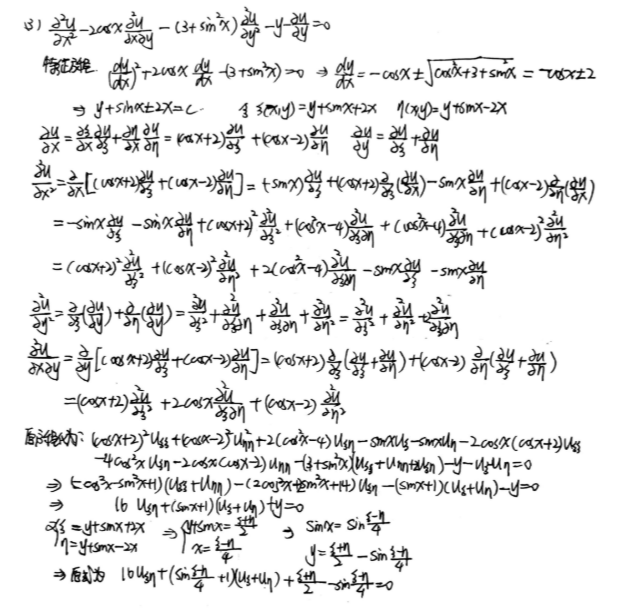 (3) ∂²u/∂x² - 2cosx ∂²u/∂x∂y - (3+sin²x) ∂²u/∂y² - y ∂u/∂y = 0
特征方程 (dy/dx)² + 2cosx dy/dx - (3+sin²x) = 0 ⇒ dy/dx = -cosx ± √(cos²x+3+sin²x) = -cosx ± 2
⇒ y + sinx ± 2x = c 令 ξ(x,y) = y+sinx+2x η(x,y) = y+sinx-2x
∂u/∂x = ∂ξ/∂x ∂u/∂ξ + ∂η/∂x ∂u/∂η = (cosx+2) ∂u/∂ξ + (cosx-2) ∂u/∂η ∂u/∂y = ∂u/∂ξ + ∂u/∂η
∂²u/∂x² = ∂/∂x [(cosx+2) ∂u/∂ξ + (cosx-2) ∂u/∂η] = (-sinx) ∂u/∂ξ + (cosx+2) ∂/∂ξ (∂u/∂x) - sinx ∂u/∂η + (cosx-2) ∂/∂η (∂u/∂x)
= -sinx ∂u/∂ξ - sinx ∂u/∂η + (cosx+2)² ∂²u/∂ξ² + (cos²x-4) ∂²u/∂ξ∂η + (cos²x-4) ∂²u/∂ξ∂η + (cosx-2)² ∂²u/∂η²
= (cosx+2)² ∂²u/∂ξ² + (cosx-2)² ∂²u/∂η² + 2(cos²x-4) ∂²u/∂ξ∂η - sinx ∂u/∂ξ - sinx ∂u/∂η
∂²u/∂y² = ∂/∂ξ (∂u/∂y) + ∂/∂η (∂u/∂y) = ∂²u/∂ξ² + ∂²u/∂ξ∂η + ∂²u/∂ξ∂η + ∂²u/∂η² = ∂²u/∂ξ² + ∂²u/∂η² + 2 ∂²u/∂ξ∂η
∂²u/∂x∂y = ∂/∂y [(cosx+2) ∂u/∂ξ + (cosx-2) ∂u/∂η] = (cosx+2) ∂/∂ξ (∂u/∂ξ + ∂u/∂η) + (cosx-2) ∂/∂η (∂u/∂ξ + ∂u/∂η)
= (cosx+2) ∂²u/∂ξ² + 2cosx ∂²u/∂ξ∂η + (cosx-2) ∂²u/∂η²
(cosx+2)² uξξ + (cosx-2)² uηη + 2(cos²x-4) uξη - sinx uξ - sinx uη - 2cosx(cosx+2) uξξ
-4cos²x uξη - 2cosx(cosx-2) uηη - (3+sin²x)(uξξ+uηη+2uξη) - y - uξ - uη = 0
⇒ (-cos²x-sin²x+1)(uξξ+uηη) - (2cos²x+2sin²x+14) uξη - (sinx+1)(uξ+uη) - y = 0
⇒ 16 uξη + (sinx+1)(uξ+uη) + y = 0
{ξ = y+sinx+2x ⇒ {y+sinx = (ξ+η)/2 ⇒ sinx = sin (ξ-η)/4
η = y+sinx-2x x = (ξ-η)/4 y = (ξ+η)/2 - sin (ξ-η)/4
⇒ 原式为 16 uξη + (sin (ξ-η)/4 + 1)(uξ+uη) + (ξ+η)/2 - sin (ξ-η)/4 = 0